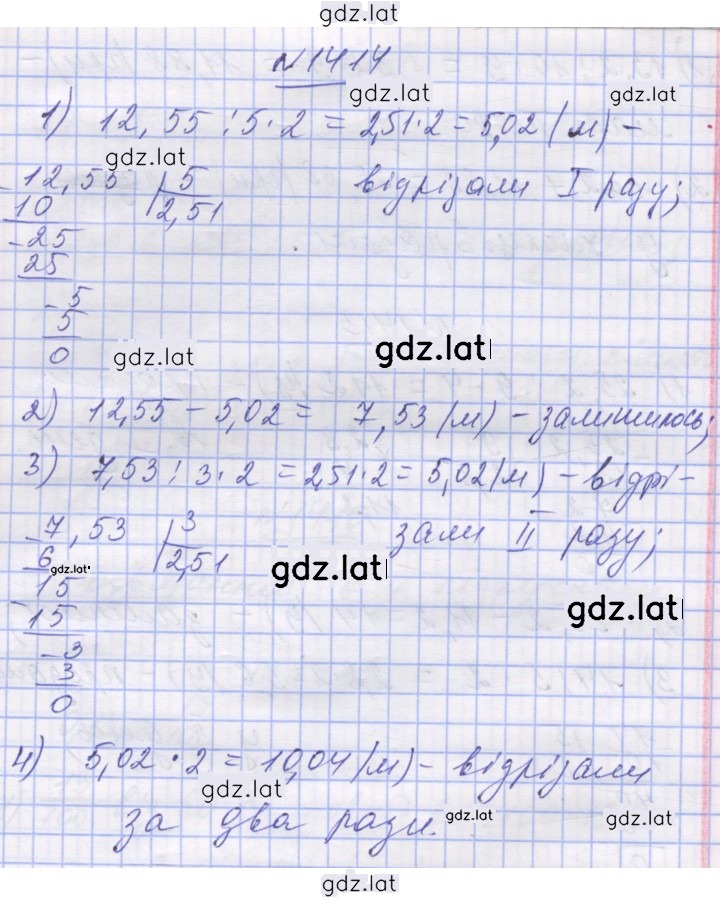 gdz.lat
№1414
gdz.lat gdz.lat
1) 12,55 : 5 · 2 = 2,51 · 2 = 5,02 (м) –
gdz.lat
відрізали I разу;
- 12,55 | 5
10 2,51
- 25
25
- 5
5
0
gdz.lat gdz.lat
2) 12,55 – 5,02 = 7,53 (м) – залишилось;
3) 7,53 : 3 · 2 = 2,51 · 2 = 5,02 (м) – відрі-
зали II разу;
- 7,53 | 3
6 2,51
gdz.lat gdz.lat
15
- 15
gdz.lat
- 3
3
0
4) 5,02 · 2 = 10,04 (м) – відрізали
gdz.lat
за два рази.
gdz.lat gdz.lat
gdz.lat